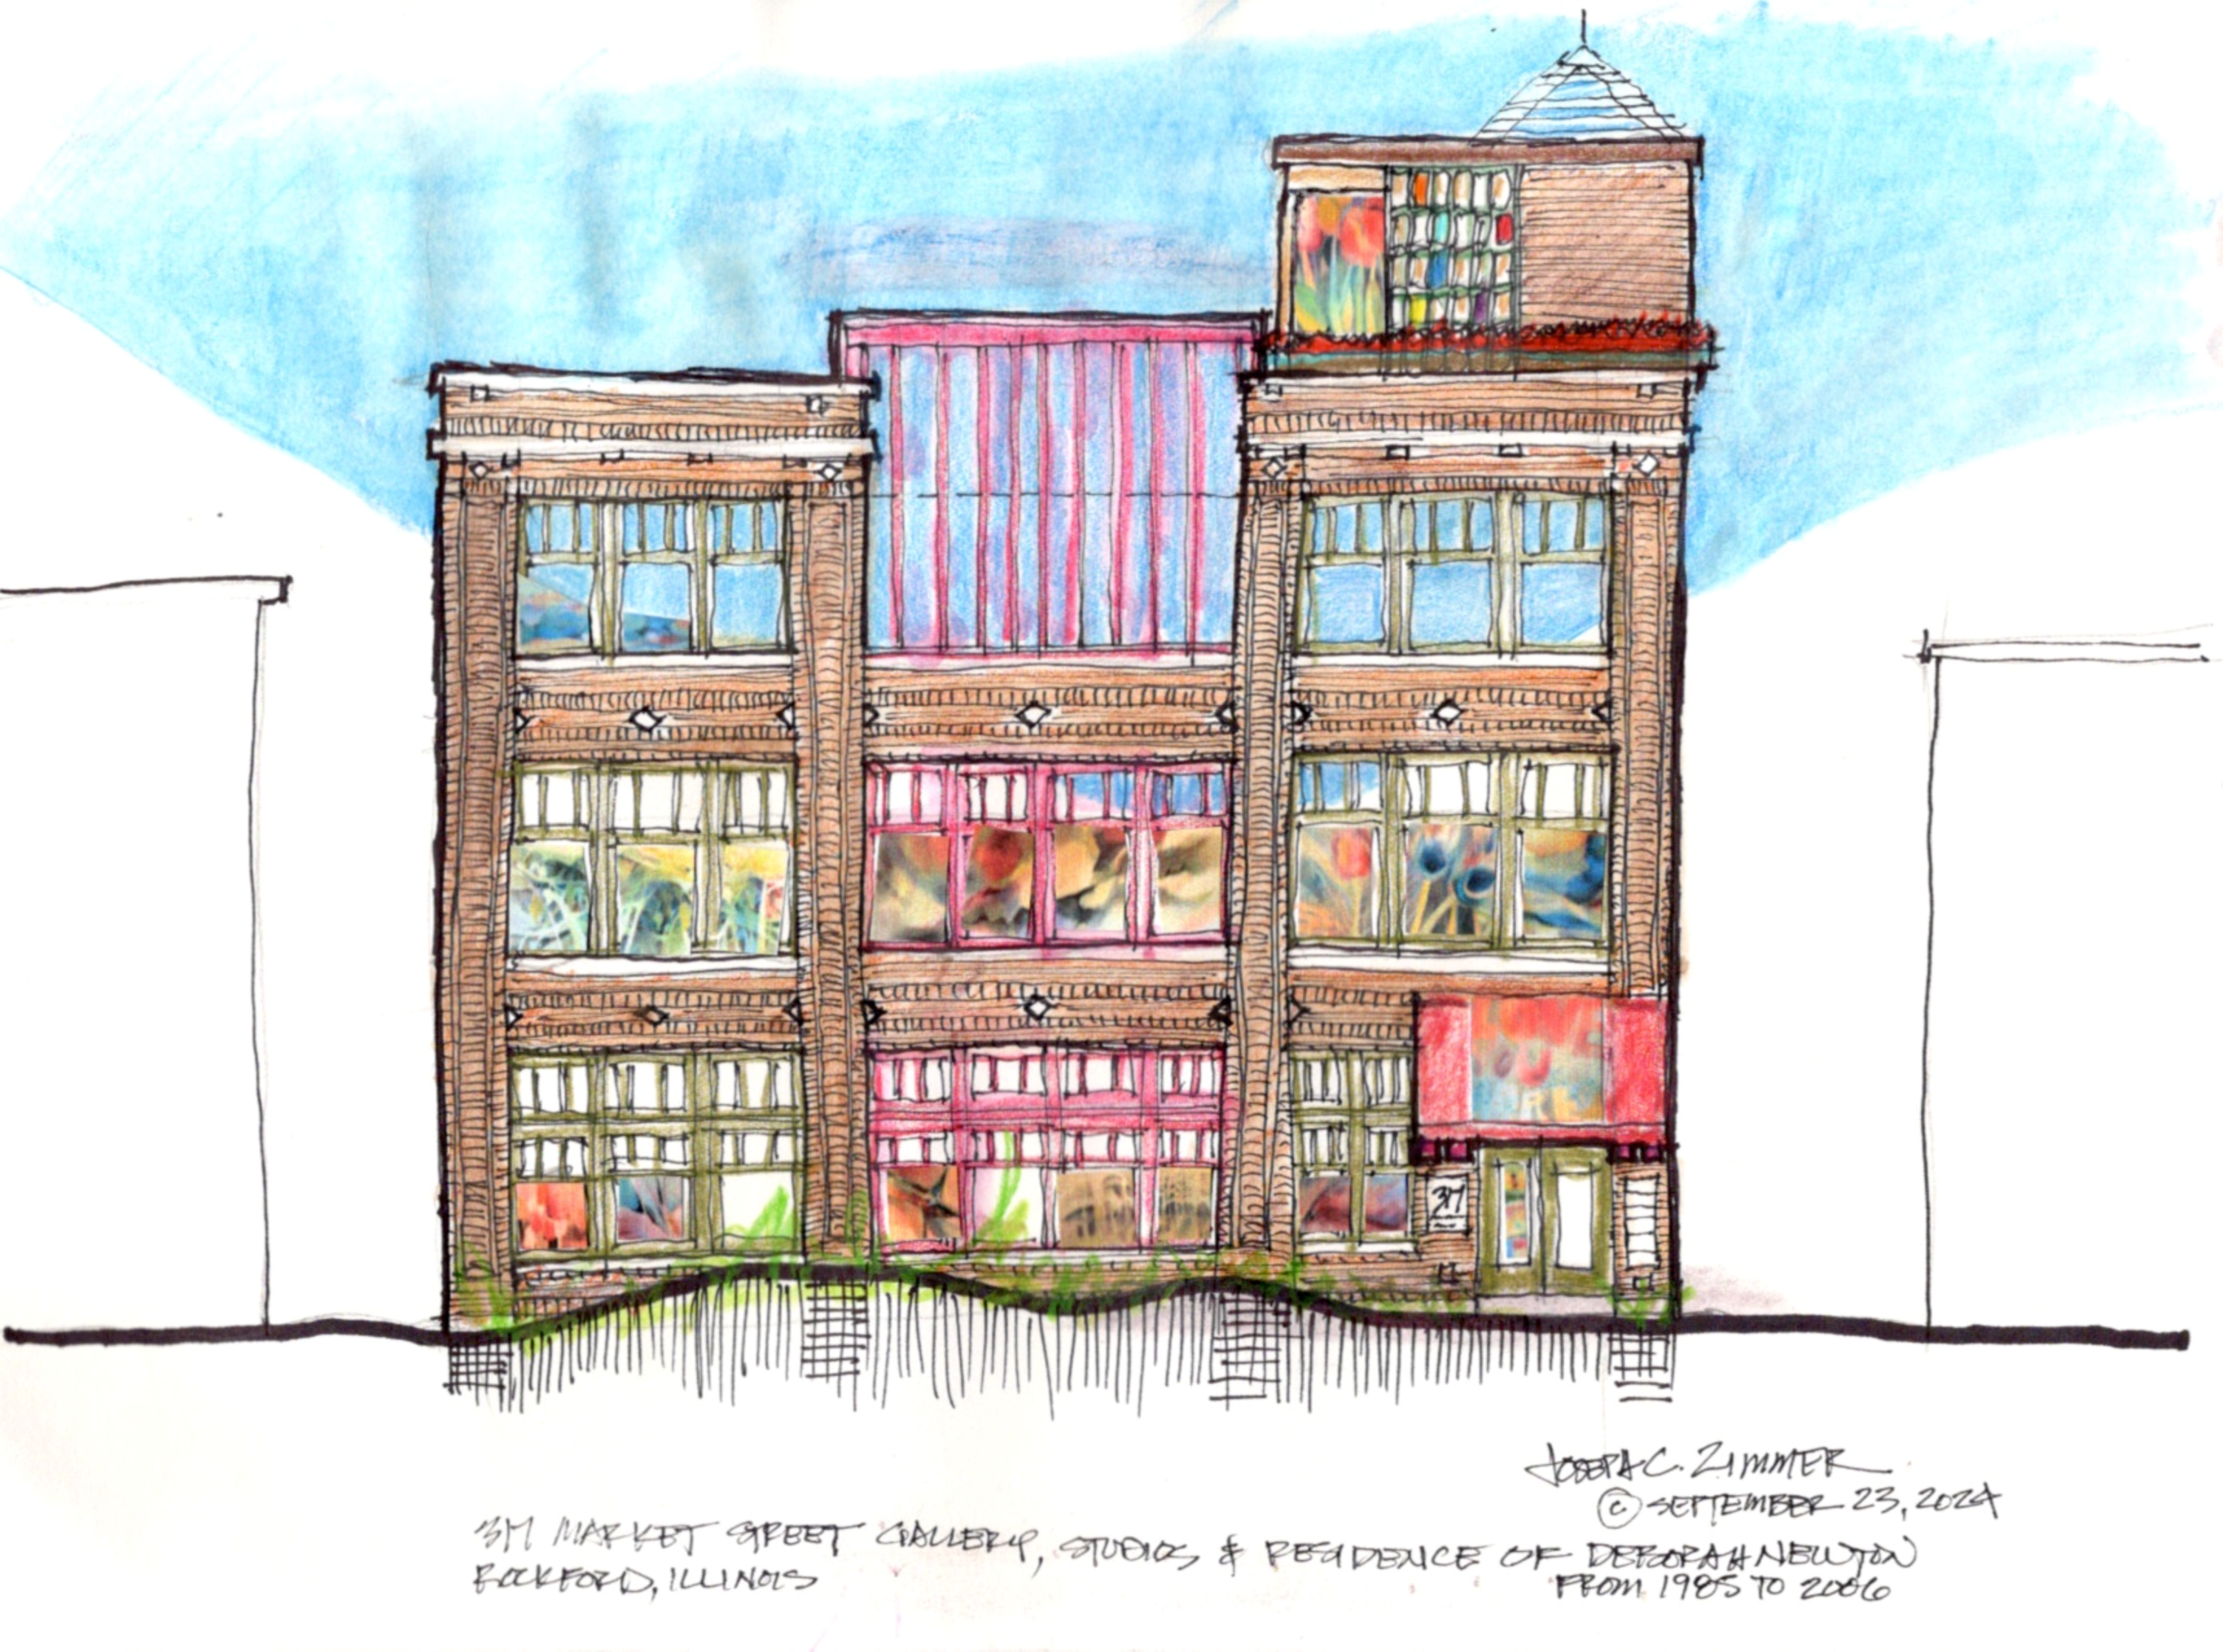 317
JOSEPH C. ZIMMER
© SEPTEMBER 23, 2024
317 MARKET STREET GALLERY, STUDIOS & RESIDENCE OF DEBORAH NEWTON
ROCKFORD, ILLINOIS FROM 1985 TO 2006